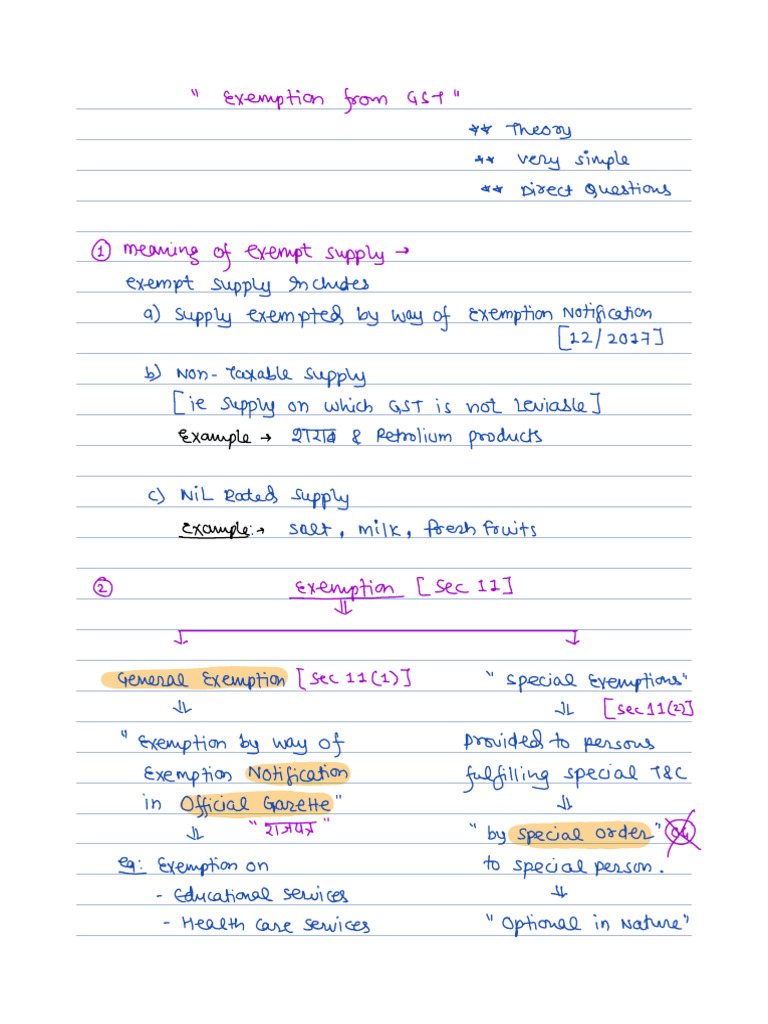 " Exemption from GST "
** Theory
** very simple
** Direct Questions
① meaning of exempt supply →
exempt supply includes
a) supply exempted by way of Exemption Notification
[12/2017]
b) Non-Taxable supply
[ie supply on which GST is not Leviable]
Example → शराब & Petrolium products
c) NiL Rated supply
Example:→ salt, milk, fresh fruits
② Exemption [Sec 11]
General Exemption [Sec 11(1)]
"Exemption by way of
Exemption Notification
in Official Gazette"
"राजपत्र"
eg: Exemption on
- Educational services
- Health care services
"special Exemptions"
[Sec 11(2)]
Provided to persons
fulfilling special T&C
"by special order"
to special person.
"Optional in Nature"